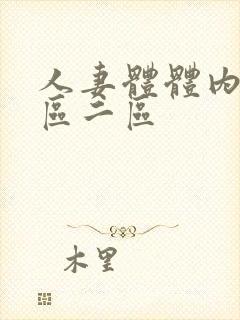 人妻體體內
區二區
木里